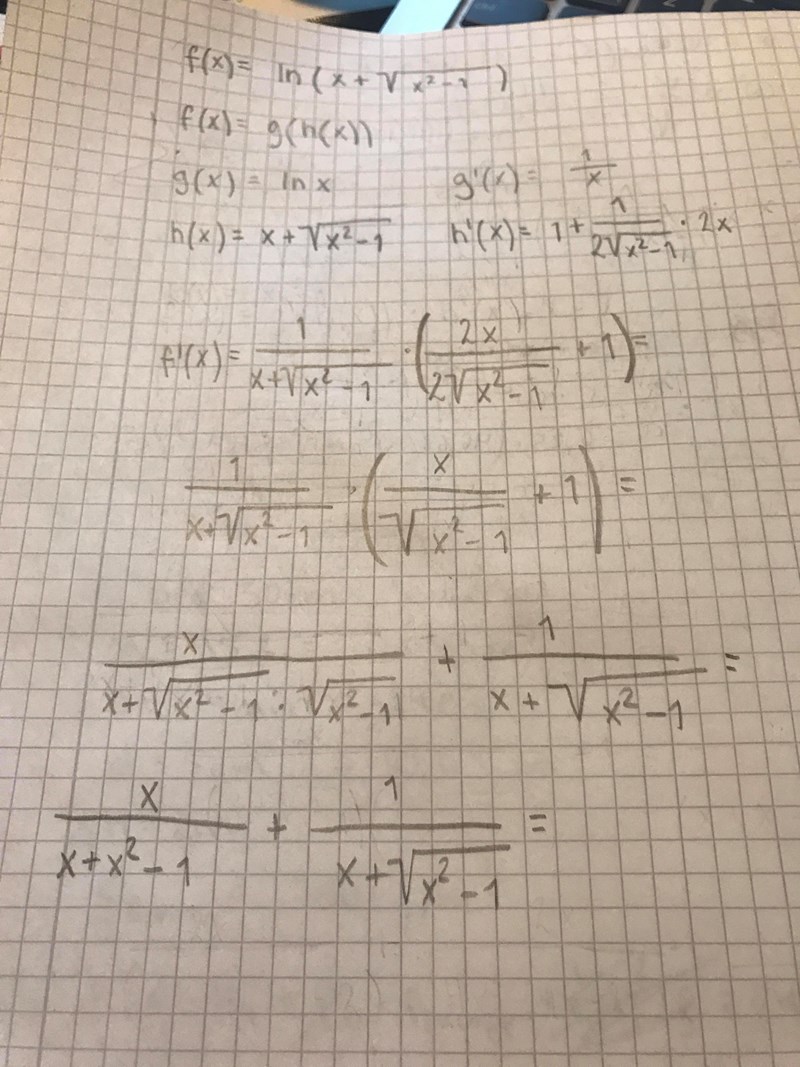 f(x) = ln(x + √(x² - 1))
f(x) = g(h(x))
g(x) = ln x    g'(x) = 1/x
h(x) = x + √(x² - 1)    h'(x) = 1 + 1/(2√(x² - 1)) · 2x
f'(x) = 1/(x + √(x² - 1)) · (2x/(2√(x² - 1)) + 1) =
1/(x + √(x² - 1)) · (x/√(x² - 1) + 1) =
x/(x + √(x² - 1) · √(x² - 1)) + 1/(x + √(x² - 1)) =
x/(x + x² - 1) + 1/(x + √(x² - 1)) =